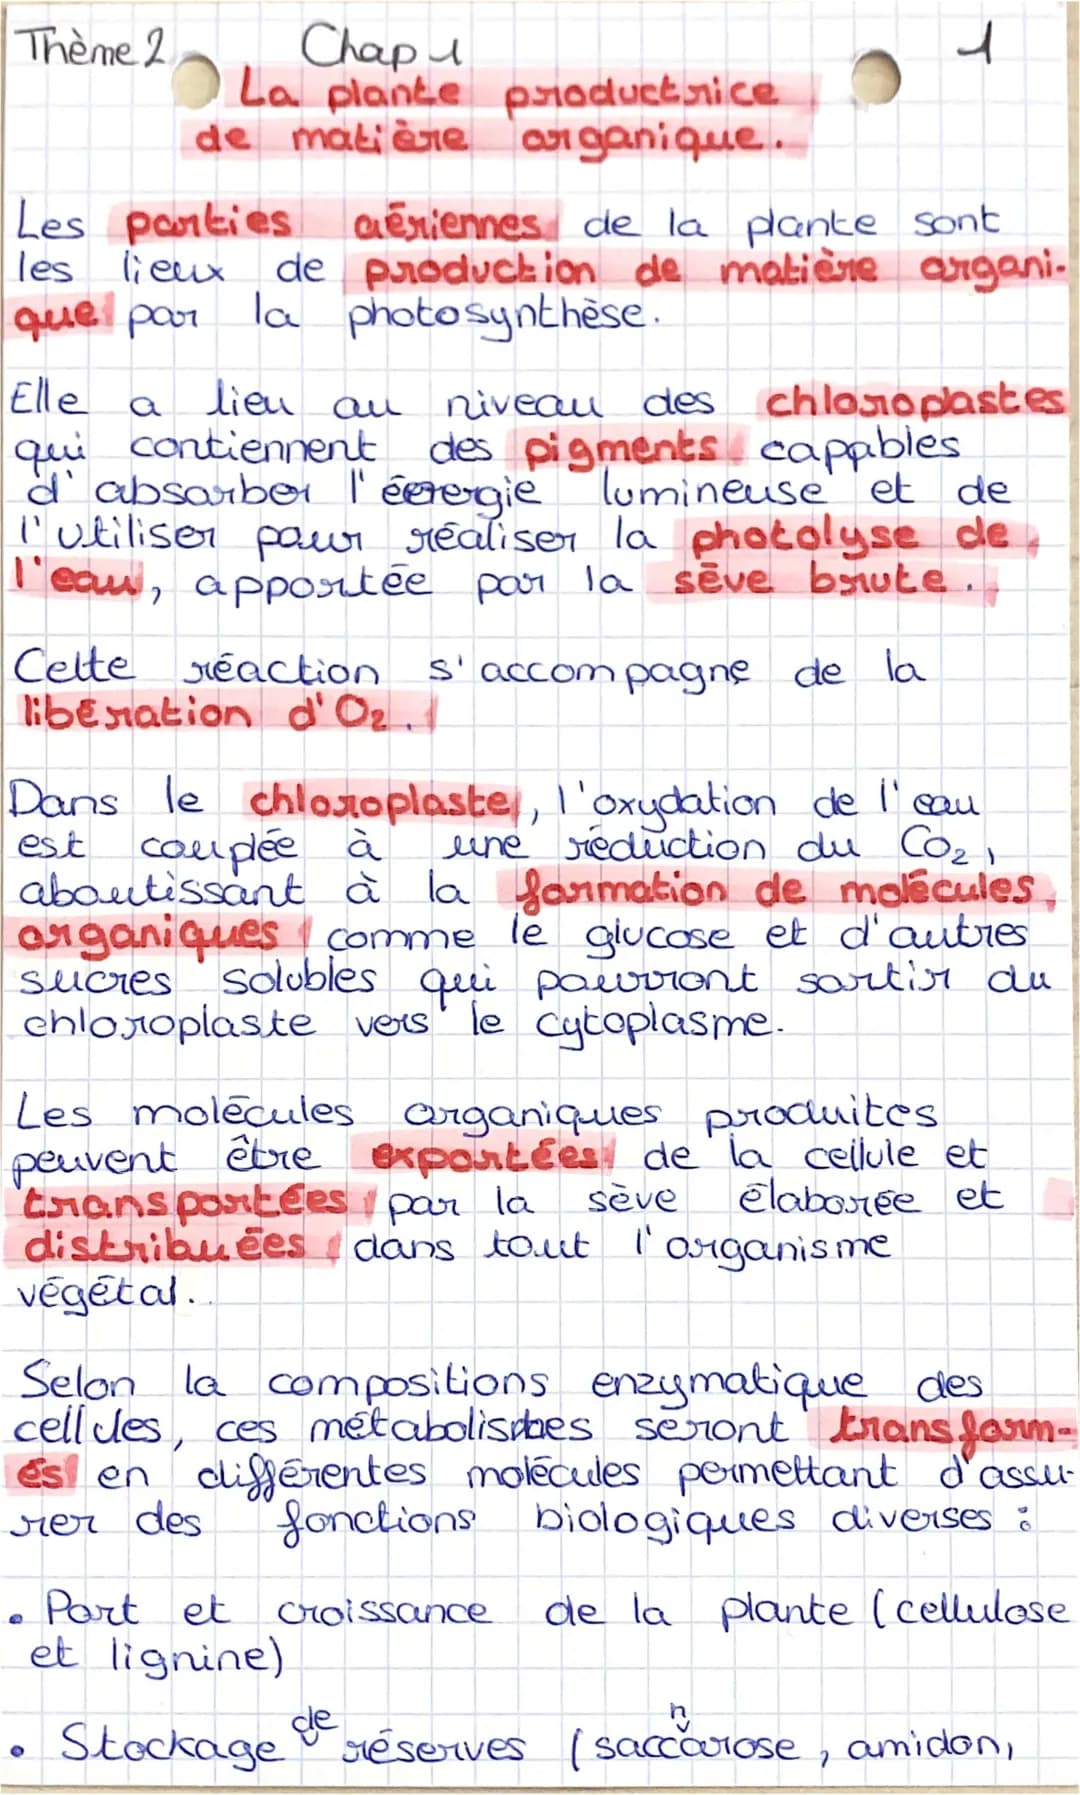 Thème 2 Chap 1 1
La plante productrice
de matière organique.
Les parties aériennes de la plante sont
les lieux de production de matière organi-
que par la photosynthèse.
Elle a lieu au niveau des chloroplastes
qui contiennent des pigments cappables
d'absorber l'énergie lumineuse et de
l'utiliser pour réaliser la photolyse de
l'eau, apportée par la sève brute.
Cette réaction s'accompagne de la
libération d'O2.
Dans le chloroplaste, l'oxydation de l'eau
est couplée à une réduction du CO2,
aboutissant à la formation de molécules
organiques comme le glucose et d'autres
sucres solubles qui pourront sortir du
chloroplaste vers le cytoplasme.
Les molécules organiques produites
peuvent être exportées de la cellule et
transportées par la sève élaborée et
distribuées dans tout l'organisme
végétal.
Selon la compositions enzymatique des
cellules, ces métabolismes seront transform-
és en différentes molécules permettant d'assu-
rer des fonctions biologiques diverses :
• Port et croissance de la plante (cellulose
et lignine)
• Stockage de réserves (saccharose, amidon,